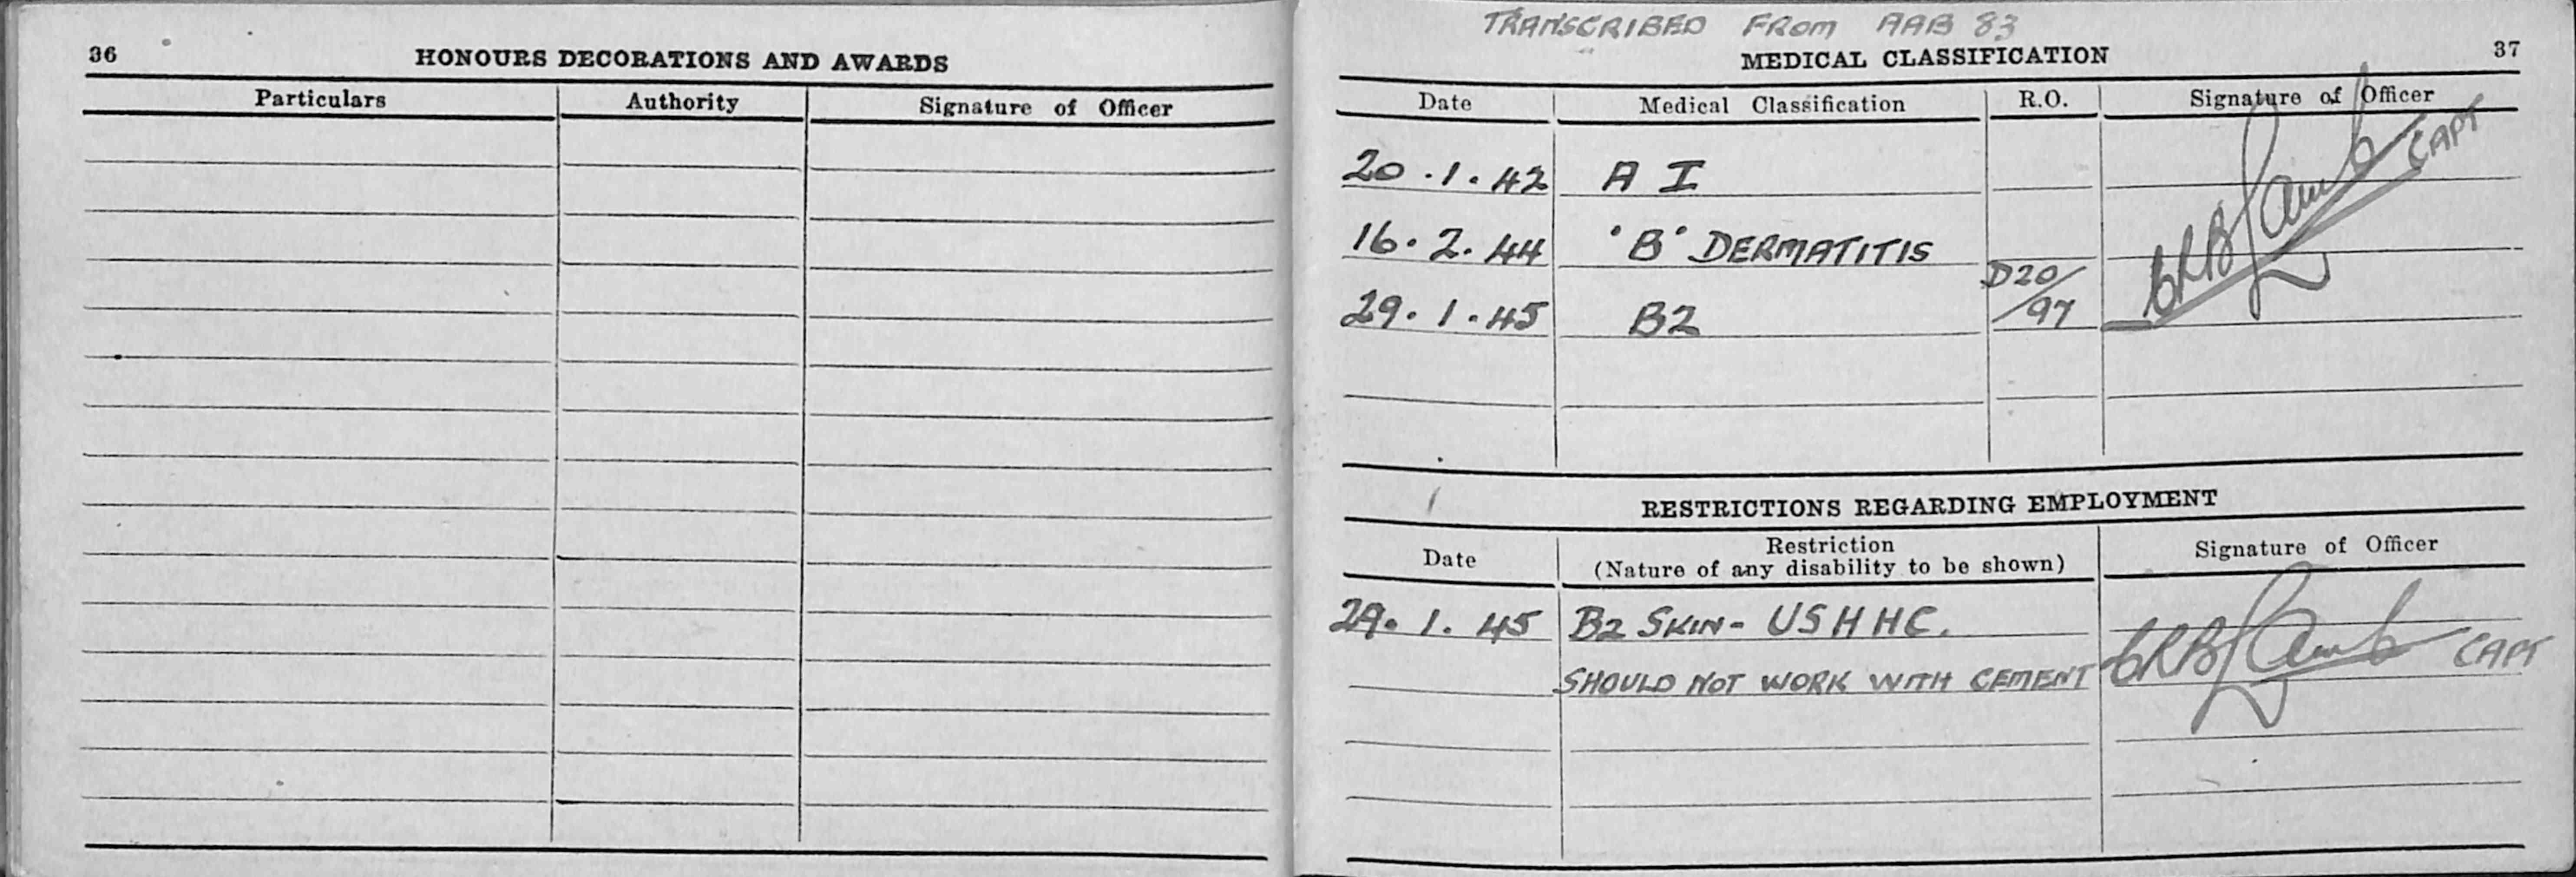 36
HONOURS DECORATIONS AND AWARDS
Particulars Authority Signature of Officer
TRANSCRIBED FROM AAB 83
MEDICAL CLASSIFICATION 37
Date Medical Classification R.O. Signature of Officer
20.1.42 A I
CAPT
16.2.44 'B' DERMATITIS
D20/97
29.1.45 B2
RESTRICTIONS REGARDING EMPLOYMENT
Date Restriction Signature of Officer
(Nature of any disability to be shown)
29.1.45 B2 SKIN- USHHC.
SHOULD NOT WORK WITH CEMENT CAPT